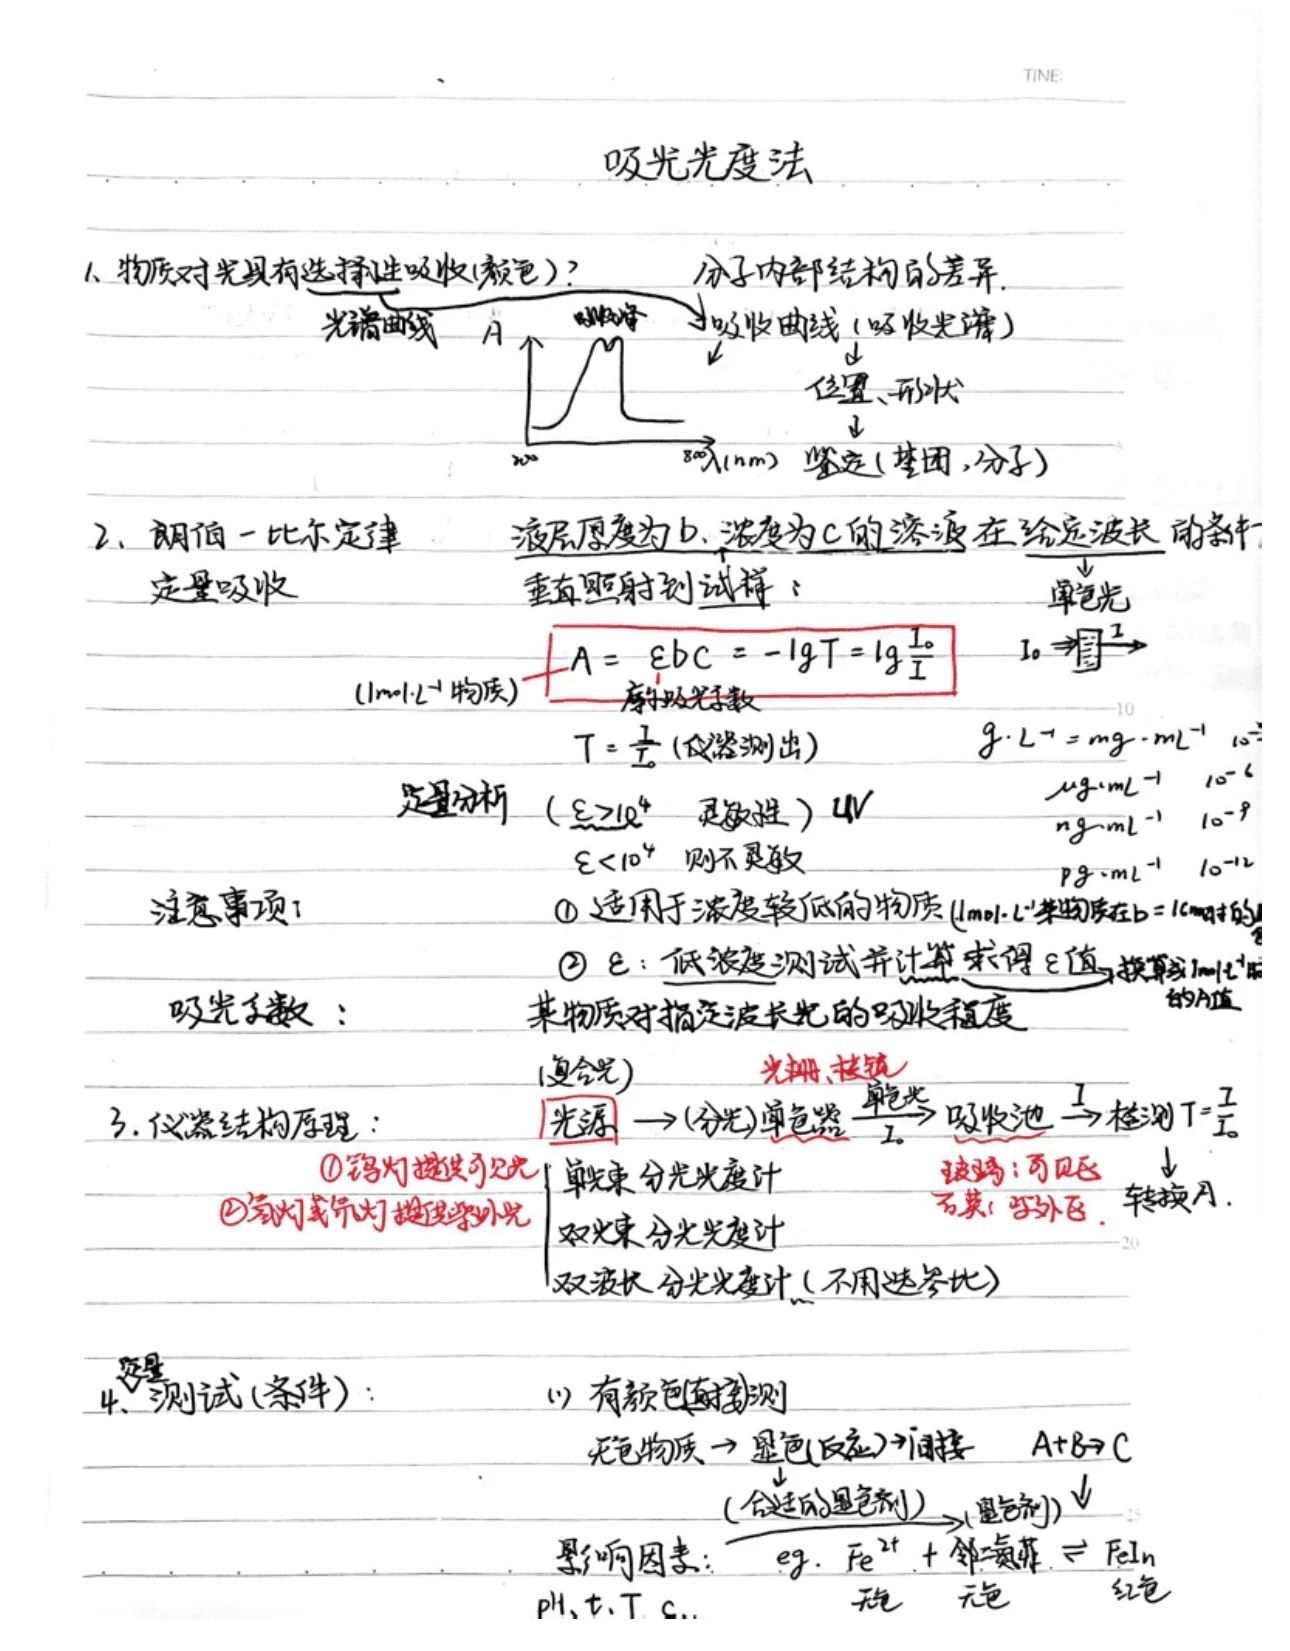 TIME:
吸光光度法
1、物质对光具有选择性吸收(颜色)? 分子内部结构的差异.
光谱曲线 A 吸收峰 吸收曲线(吸收光谱)
↓
位置、形状
↓
200 800 λ(nm) 鉴定(基团,分子)
2、朗伯-比尔定律 液层厚度为b、浓度为c的溶液在给定波长的条件
定量吸收 垂直照射到试样: 单色光
A = εbC = -lgT = lg I₀/I I₀ I
(1mol·L⁻¹物质) 摩尔吸光系数
10
T = I/I₀ (仪器测出) g·L⁻¹ = mg·mL⁻¹
定量分析 (ε>10⁴ 灵敏性) UV μg·mL⁻¹ 10⁻⁶
ng·mL⁻¹ 10⁻⁹
ε<10⁴ 则不灵敏 pg·mL⁻¹ 10⁻¹²
注意事项: ① 适用于浓度较低的物质 (1mol·L⁻¹某物质在b=1cm时的
② ε: 低浓度测试并计算求得ε值→换算成1mol·L⁻¹时
的A值
吸光系数: 某物质对指定波长光的吸收程度
(复合光) 光栅、棱镜
3.仪器结构原理: 光源 →(分光)单色器 单色光→ I₀ 吸收池 I→ 检测T=I/I₀
①钨灯提供可见光 单光束分光光度计 玻璃:可见区 ↓
②氢灯或氘灯提供紫外光 石英:紫外区. 转换A.
双光束分光光度计
20
双波长分光光度计(不用选参比)
定量
4、测试(条件): (1) 有颜色(直接)测
无色物质→显色(反应)→间接 A+B→C
↓
(合适的显色剂) (显色剂)
25
影响因素: eg. Fe²⁺ + 邻二氮菲 ⇌ FeIn
pH、t、T、c.. 无色 无色 红色